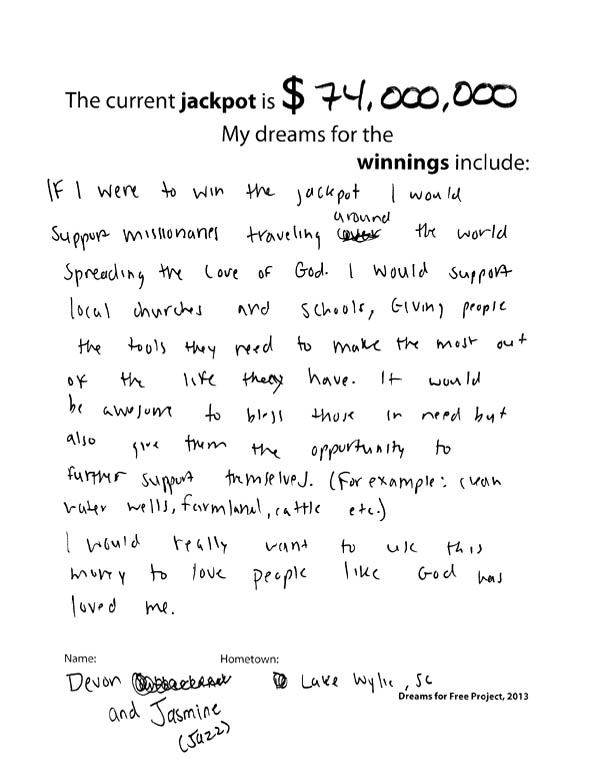 The current jackpot is $74,000,000
My dreams for the
winnings include:
IF I were to win the jackpot I would
support missionaries traveling around the world
spreading the love of God. I would support
local churches and schools, Giving people
the tools they need to make the most out
of the life they have. It would
be awesome to bless those in need but
also give them the opportunity to
further support themselves. (For example: clean
water wells, farmland, cattle etc.)
I would really want to use this
money to love people like God has
loved me.
Name: Hometown:
Devon Lake Wylie, SC
Dreams for Free Project, 2013
and Jasmine
(Jazz)